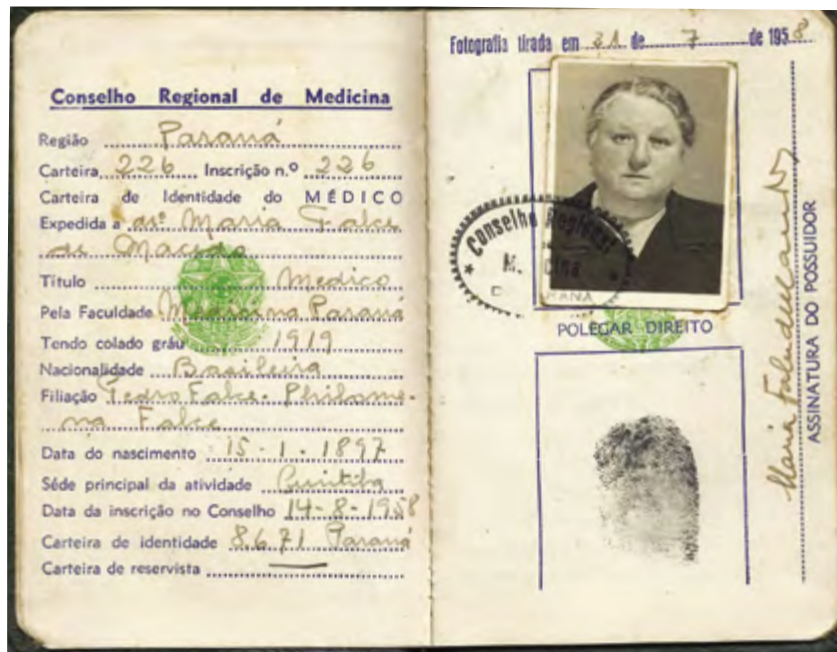 Conselho Regional de Medicina
Região Paraná
Carteira 226 Inscrição n.º 226
Carteira de Identidade do MÉDICO
Expedida a drª Maria Falce
de Macedo
Título Medico
Pela Faculdade Medicina Paraná
Tendo colado gráu 1919
Nacionalidade Brasileira
Filiação Pedro Falce - Philome-
na Falce
Data do nascimento 15-1-1897
Séde principal da atividade Curitiba
Data da inscrição no Conselho 14-8-1958
Carteira de identidade 8.671 Paraná
Carteira de reservista
Fotografia tirada em 31 de 7 de 1958
Conselho Regional
POLEGAR DIREITO
ASSINATURA DO POSSUIDOR